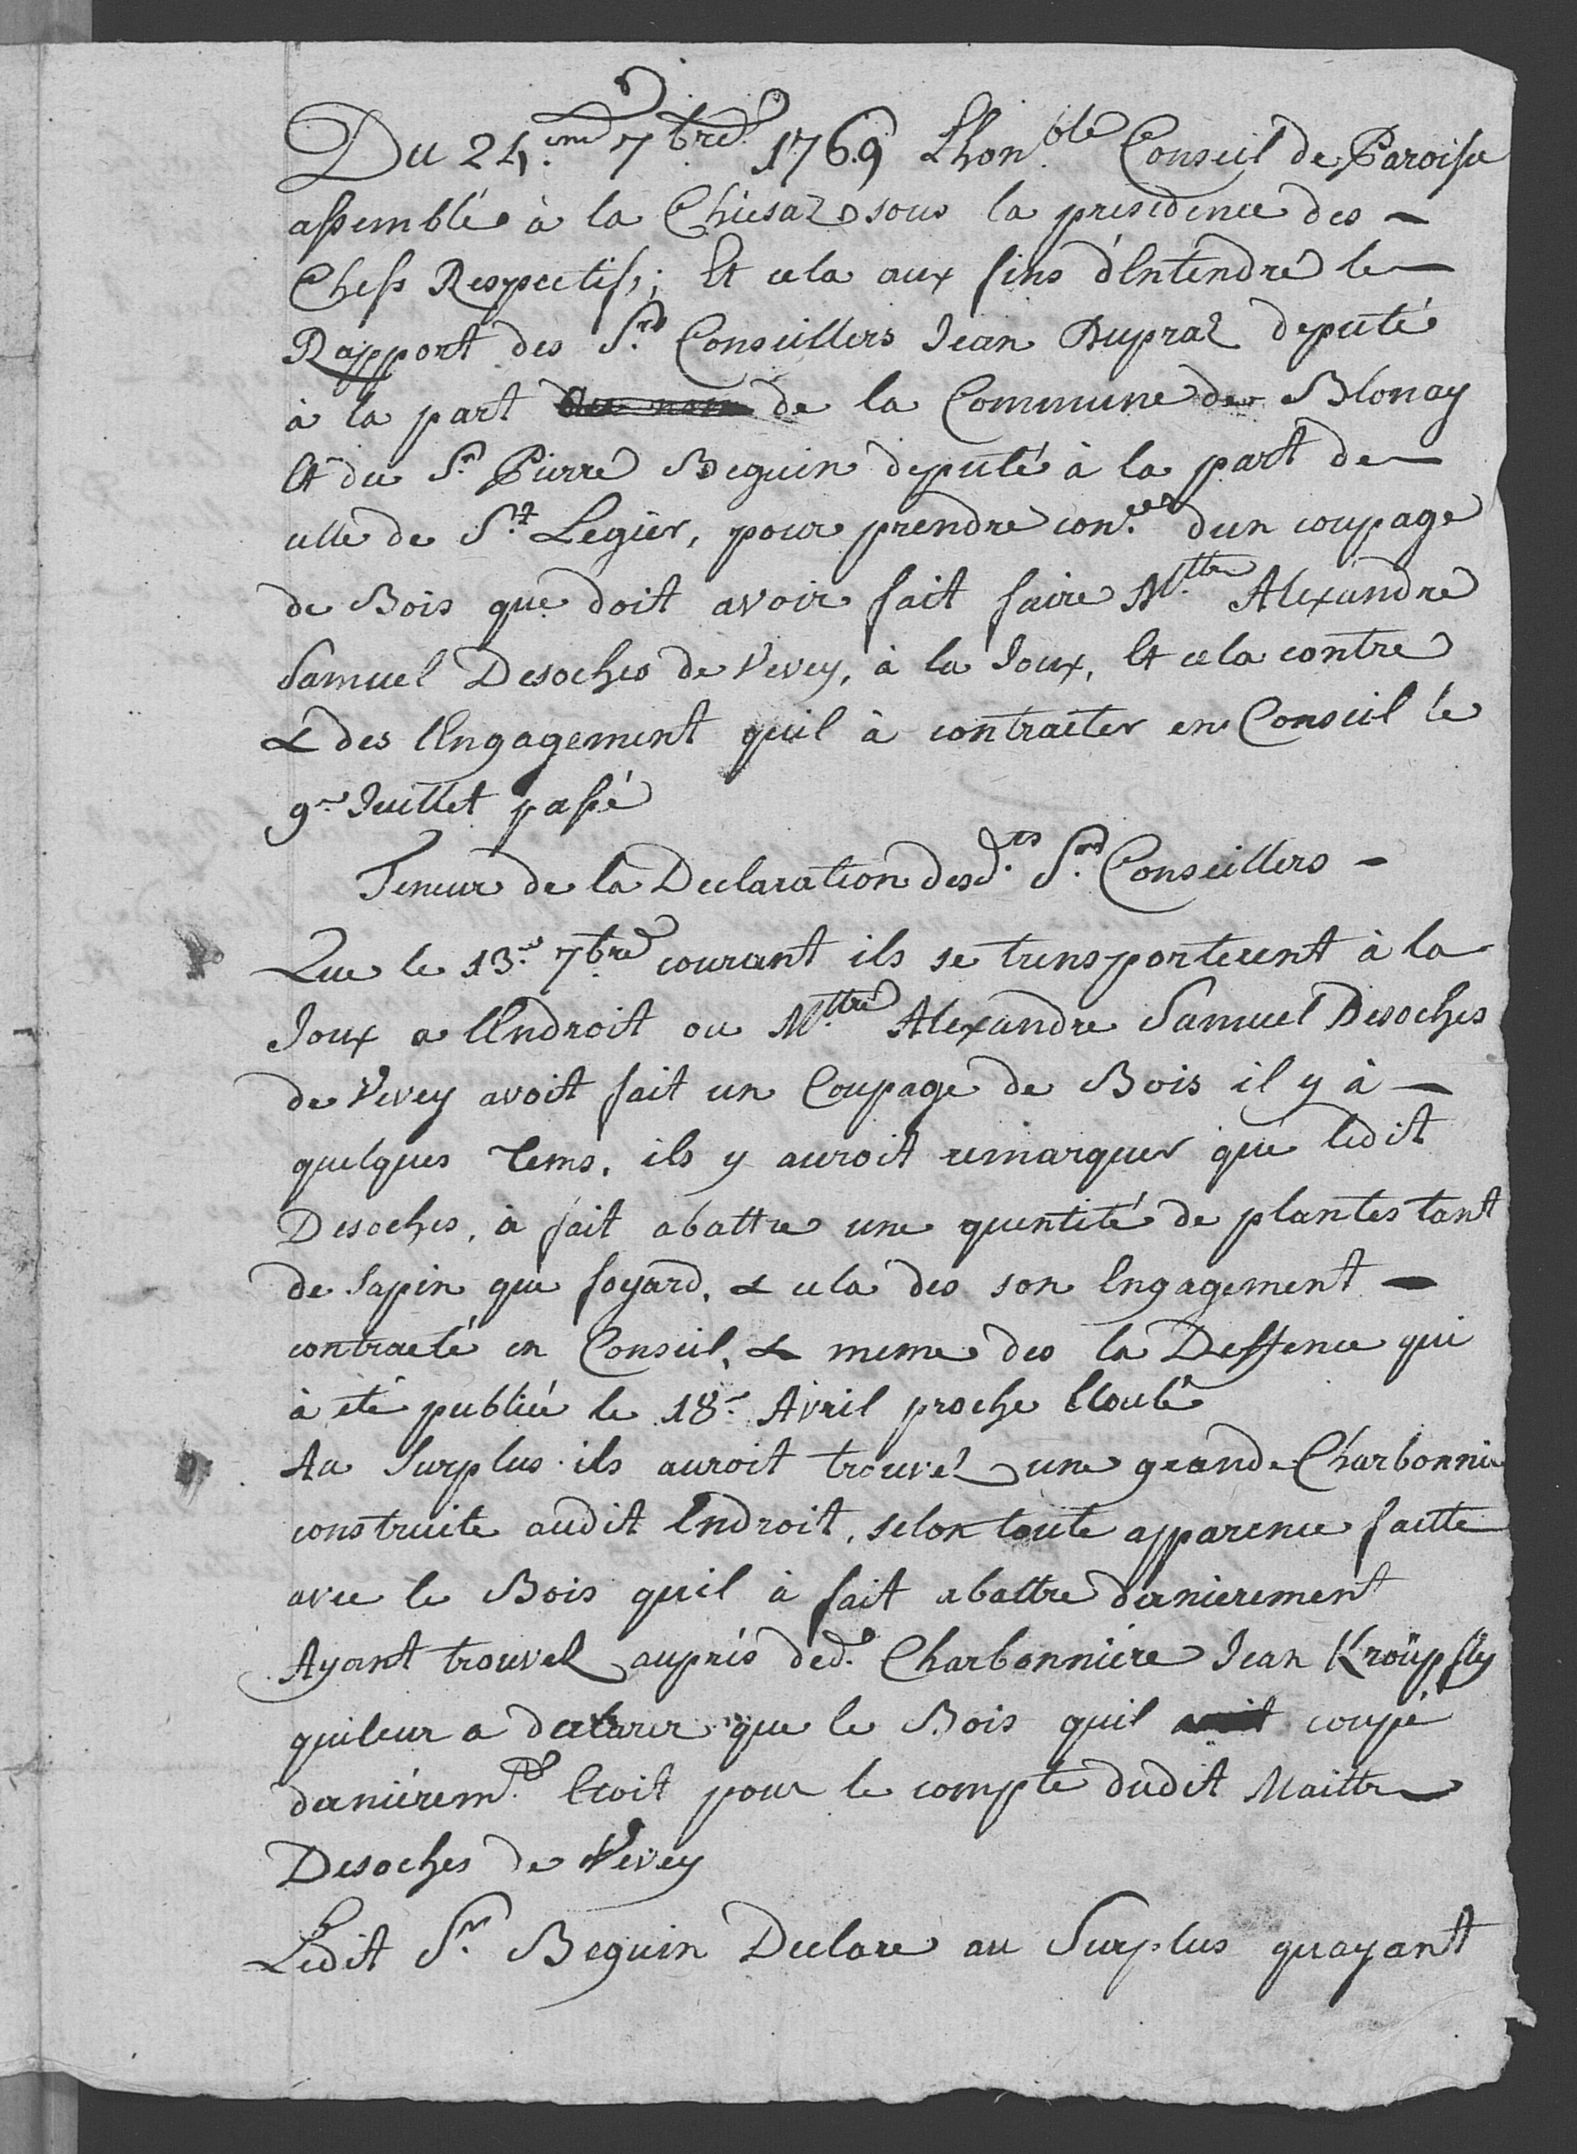 Du 24.eme 7bre. 1769 Lhon.ble Conseil de Paroisse
assemblé à la Chiesaz sous la presidence des -
Chefs Respectifs; Et cela aux fins d'Entendre le -
Rapport des S.rs Conseillers Jean Dupraz deputé
à la part de la Commune de Blonay
Et du S.r Pierre Beguin deputé à la part de -
celle de S.t Legier, pour prendre con.ce d'un coupage
de Bois que doit avoir fait faire M.ttre Alexandre
Samuel Desoches de Vevey, à la Joux, Et cela contre
& des l'Engagement quil à contracter en Conseil le
9.e Juillet passé
Teneur de la Declaration desd.ts S.rs Conseillers -
Que le 13.e 7bre courant ils se transporterent à la
Joux a l'Endroit ou M.ttre Alexandre Samuel Desoches
de Vevey avoit fait un Coupage de Bois il y à -
quelques Tems, ils y auroit remarquer que ledit
Desoches, à fait abattre une quentité de plantes tant
de Sapin que foyard, & cela des son Engagement -
contracté en Conseil, & meme des la Deffence qui
à été publiée le 18.e Avril proche Ecoulé
Au Surplus ils auroit trouvéz une grande Charbonnie
construite audit Endroit, selon toute apparence faitte
avec le Bois quil à fait abattre dernierement
Ayant trouvez auprés de d.e Charbonniére Jean Kroüpfly
qui leur a declarer que le Bois quil avoit coupé
derniérem.t Etoit pour le compte dudit Maittre
Desoches de Vevey
Ledit S.r Beguin Declare au Surplus qu'ayant